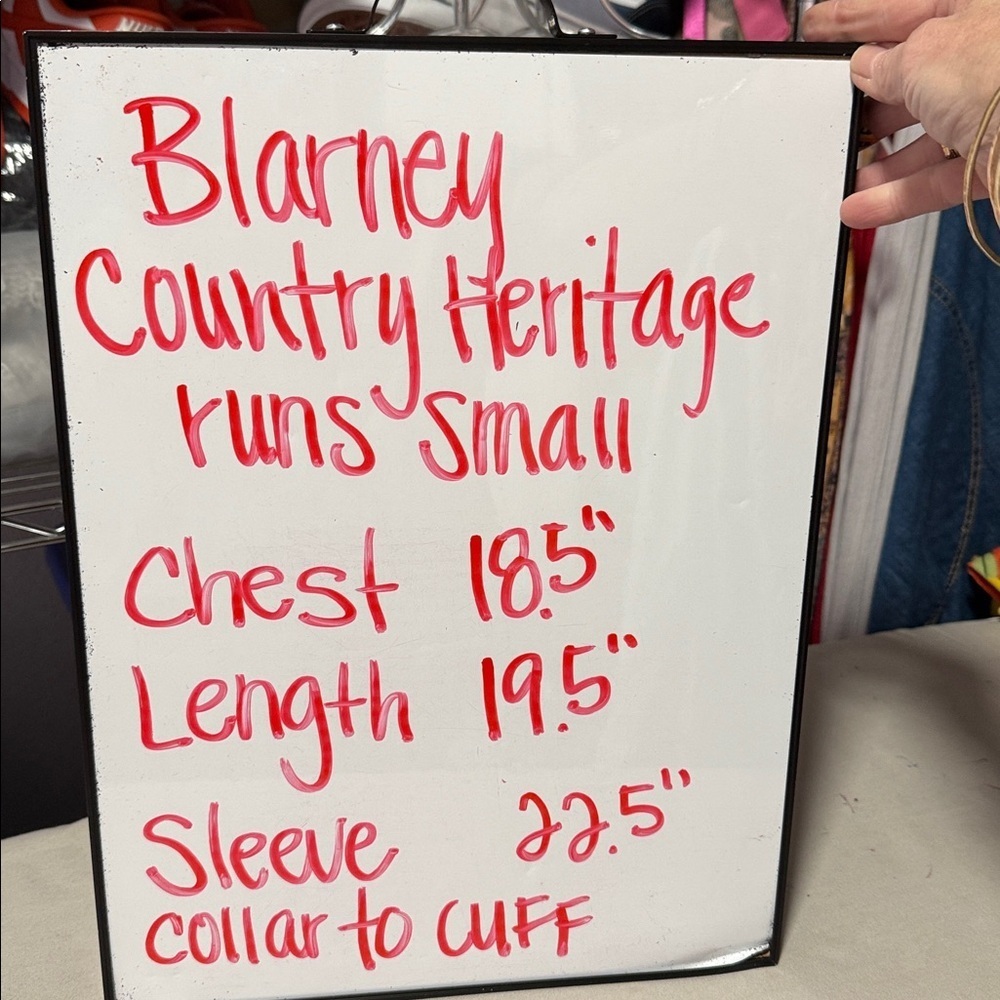 Blarney
Country Heritage
runs small
Chest 18.5"
Length 19.5"
Sleeve 22.5"
collar to cuff
NIKE